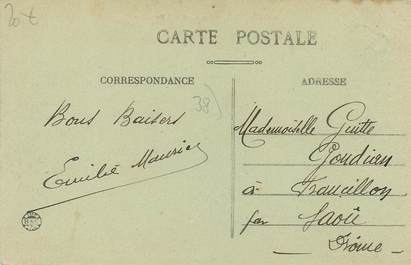 20 €
CARTE POSTALE
CORRESPONDANCE
ADRESSE
38)
Bons Baisers
Emilie Maurice
Mademoiselle
à Francillon
par Saoû
Drôme